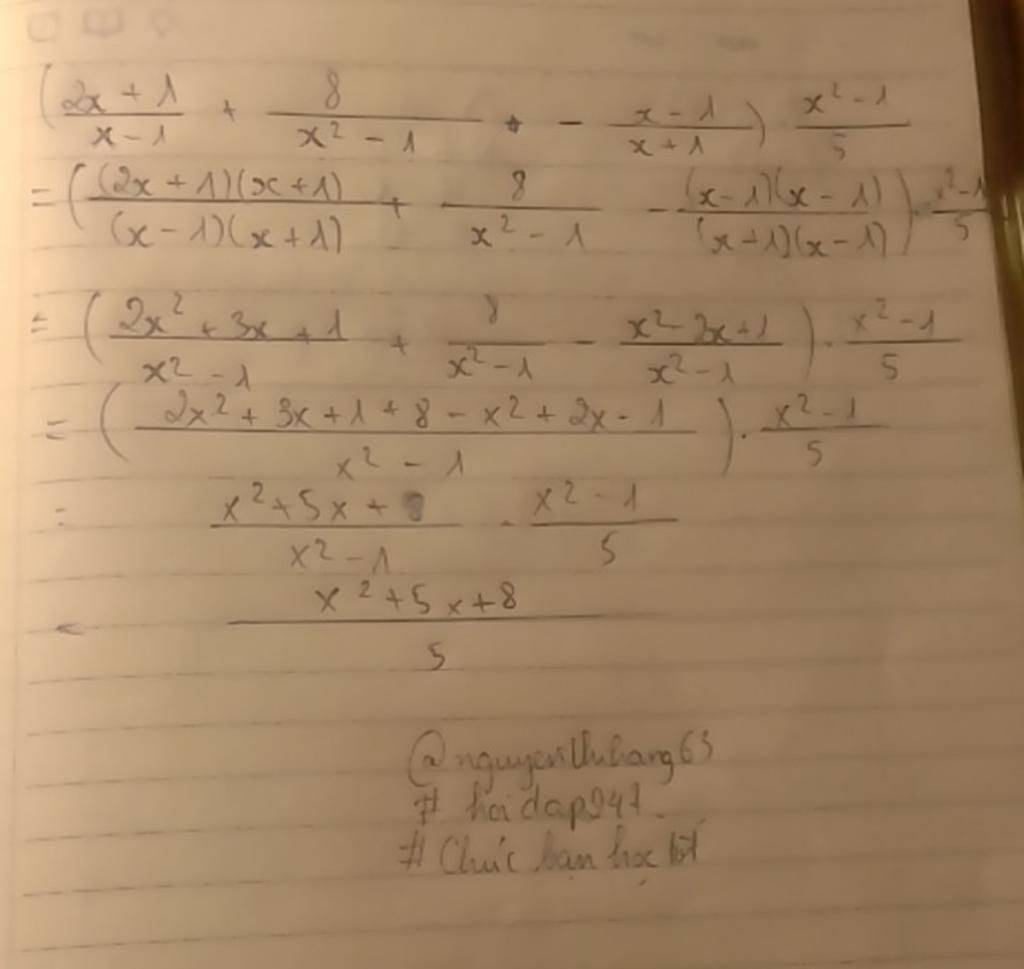 (2x + 1 / x - 1 + 8 / x² - 1 - x - 1 / x + 1) x² - 1 / 5
= ((2x + 1)(x + 1) / (x - 1)(x + 1) + 8 / x² - 1 - (x - 1)(x - 1) / (x + 1)(x - 1)) . x² - 1 / 5
= (2x² + 3x + 1 / x² - 1 + 8 / x² - 1 - x² - 2x + 1 / x² - 1) . x² - 1 / 5
= (2x² + 3x + 1 + 8 - x² + 2x - 1 / x² - 1) . x² - 1 / 5
= x² + 5x + 8 / x² - 1 . x² - 1 / 5
= x² + 5x + 8 / 5
@nguyenthuhang63
# hoidap247.
# Chúc bạn học tốt